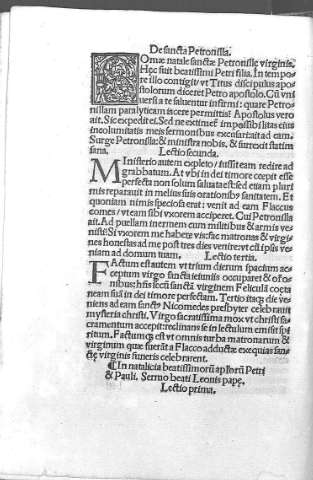 De sancta Petronilla.
Romæ natale sanctæ Petronillę virginis.
Hęc fuit beatissimi Petri filia. In tempo⸗
re illo contigit, vt Titus discipulus apo⸗
stolorum diceret Petro apostolo. Cũ vni
uersi a te saluentur infirmi: quare Petro⸗
nillam paralyticam iacere permittis? Apostolus vero
ait. Sic expedit ei. Sed ne existimet impossibilitas eius
incolumitatis meis sermonibus excusari: ait ad eam.
Surge Petronilla: & ministra nobis, & surrexit statim
sana. Lectio secunda.
MInisterio autem expleto, iussit eam redire ad
grabbatum. At vbi in dei timore cœpit esse
perfecta non solum saluata est: sed etiam pluri
mis reparauit in melius suis orationibꝰ sanitatem. Et
quoniam nimis speciosa erat: venit ad eam Flaccus
comes, vt eam sibi vxorem acciperet. Cui Petronilla
ait. Ad puellam inermem cum militibus & armis ve⸗
nisti? Si vxorem me habere vis: fac matronas & virgi⸗
nes honestas ad me post tres dies venire: vt cũ ipsis ve⸗
niam ad domum tuam. Lectio tertia.
FActum est autem vt trium dierum spacium ac⸗
ceptum virgo sancta ieiuniis occuparet & ořo⸗
nibus: hňs secũ sanctã virginem Felicula coeta
neam suã in dei timore perfectam. Tertio itaq̃ die ve⸗
niens ad eam sanctꝰ Nicomedes presbyter celebrauit
mysteria christi. Virgo sacratissima mox vt christi sa⸗
cramentum accepit: reclinans se in lectulum emisit spi
ritum. Factumq̃ est vt omnis turba matronarum &
virginum quæ fuerãt a Flacco adductæ exequias san⸗
ctę virginis funeris celebrarent.
¶ In natalicia beatissimorũ apľorũ Petri
& Pauli. Sermo beati Leonis papę.
Lectio prima.